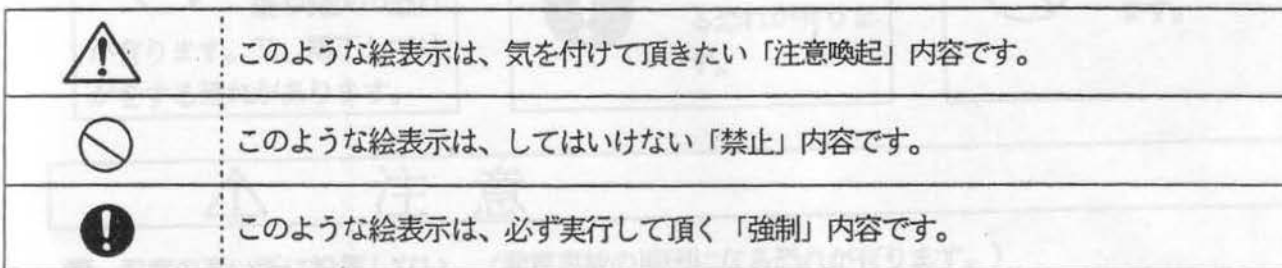 このような絵表示は、気を付けて頂きたい「注意喚起」内容です。
このような絵表示は、してはいけない「禁止」内容です。
このような絵表示は、必ず実行して頂く「強制」内容です。